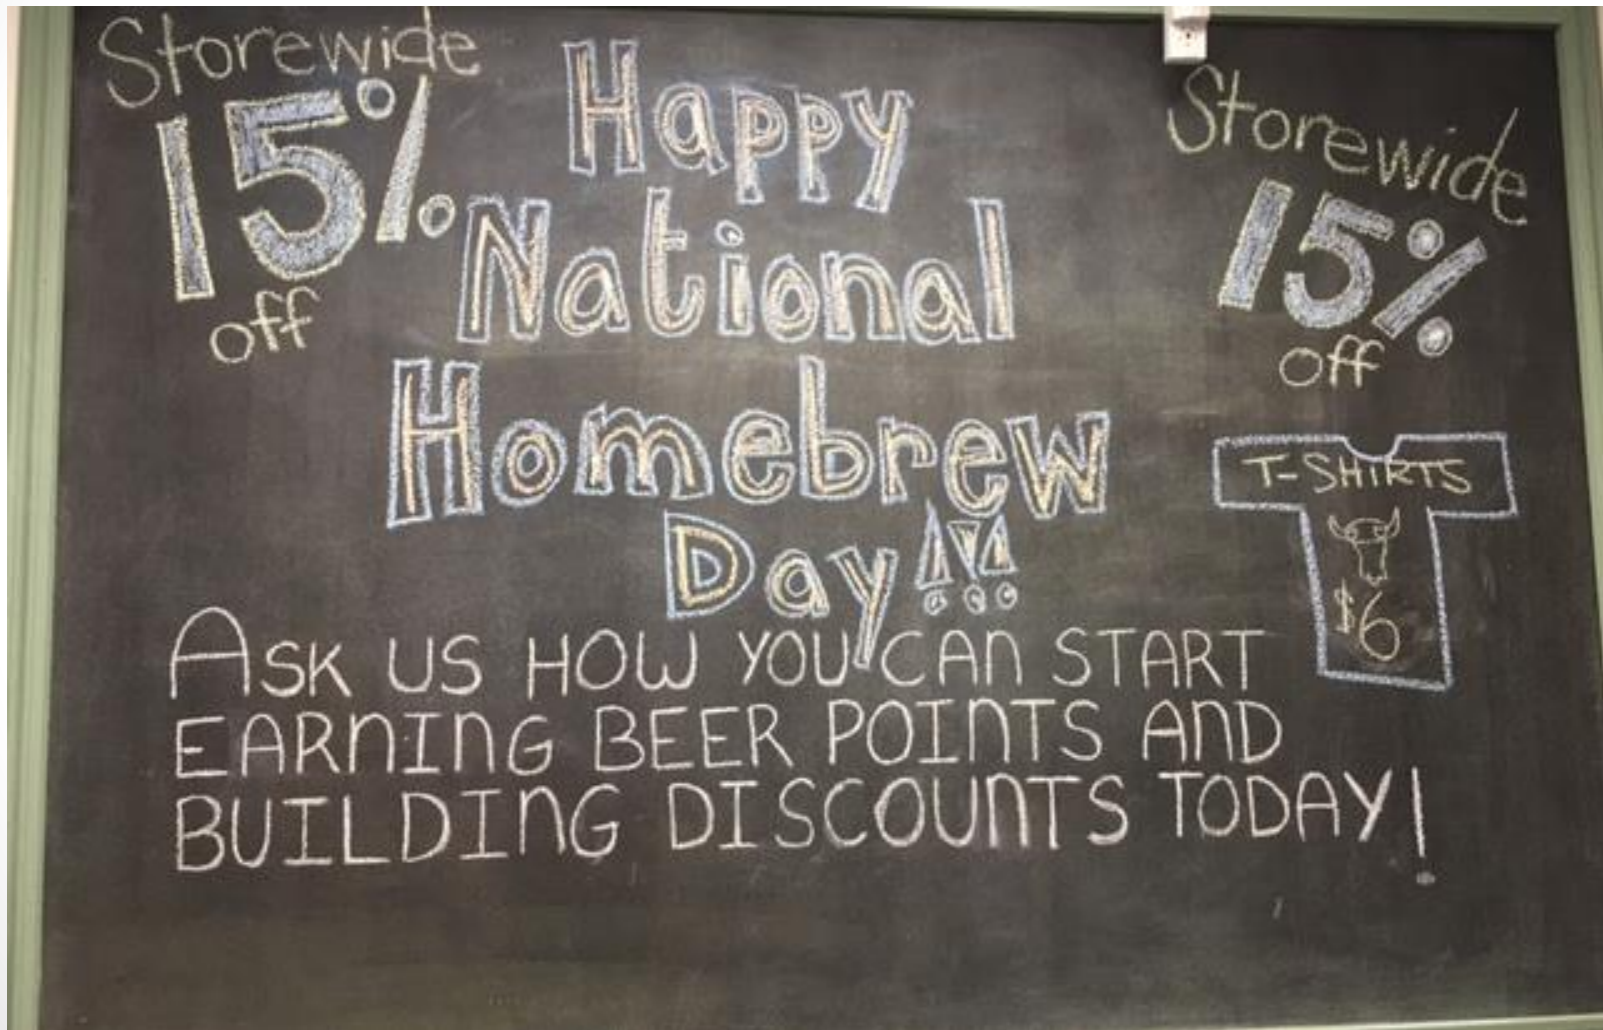 Storewide
15%
off
Happy
National
Homebrew
Day!!!
Storewide
15%
off
T-SHIRTS
$6
ASK US HOW YOU CAN START
EARNING BEER POINTS AND
BUILDING DISCOUNTS TODAY!